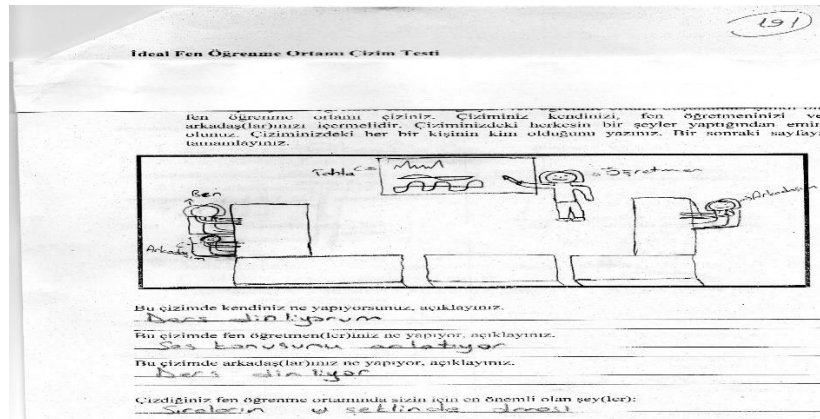 191
İdeal Fen Öğrenme Ortamı Çizim Testi
fen öğrenme ortamı çiziniz. Çiziminiz kendinizi, fen öğretmeninizi ve
arkadaş(lar)ınızı içermelidir. Çiziminizdeki herkesin bir şeyler yaptığından emin
olunuz. Çiziminizdeki her bir kişinin kim olduğunu yazınız. Bir sonraki sayfayı
tamamlayınız.
Tahta
Öğretmen
Ben
Arkadaşım
Arkadaş
Bu çizimde kendiniz ne yapıyorsunuz, açıklayınız.
Ders dinliyorum
Bu çizimde fen öğretmen(ler)iniz ne yapıyor, açıklayınız.
Ses konusunu anlatıyor
Bu çizimde arkadaş(lar)ınız ne yapıyor, açıklayınız.
Ders dinliyor
Çizdiğiniz fen öğrenme ortamında sizin için en önemli olan şey(ler):
Sıraların u şeklinde olması